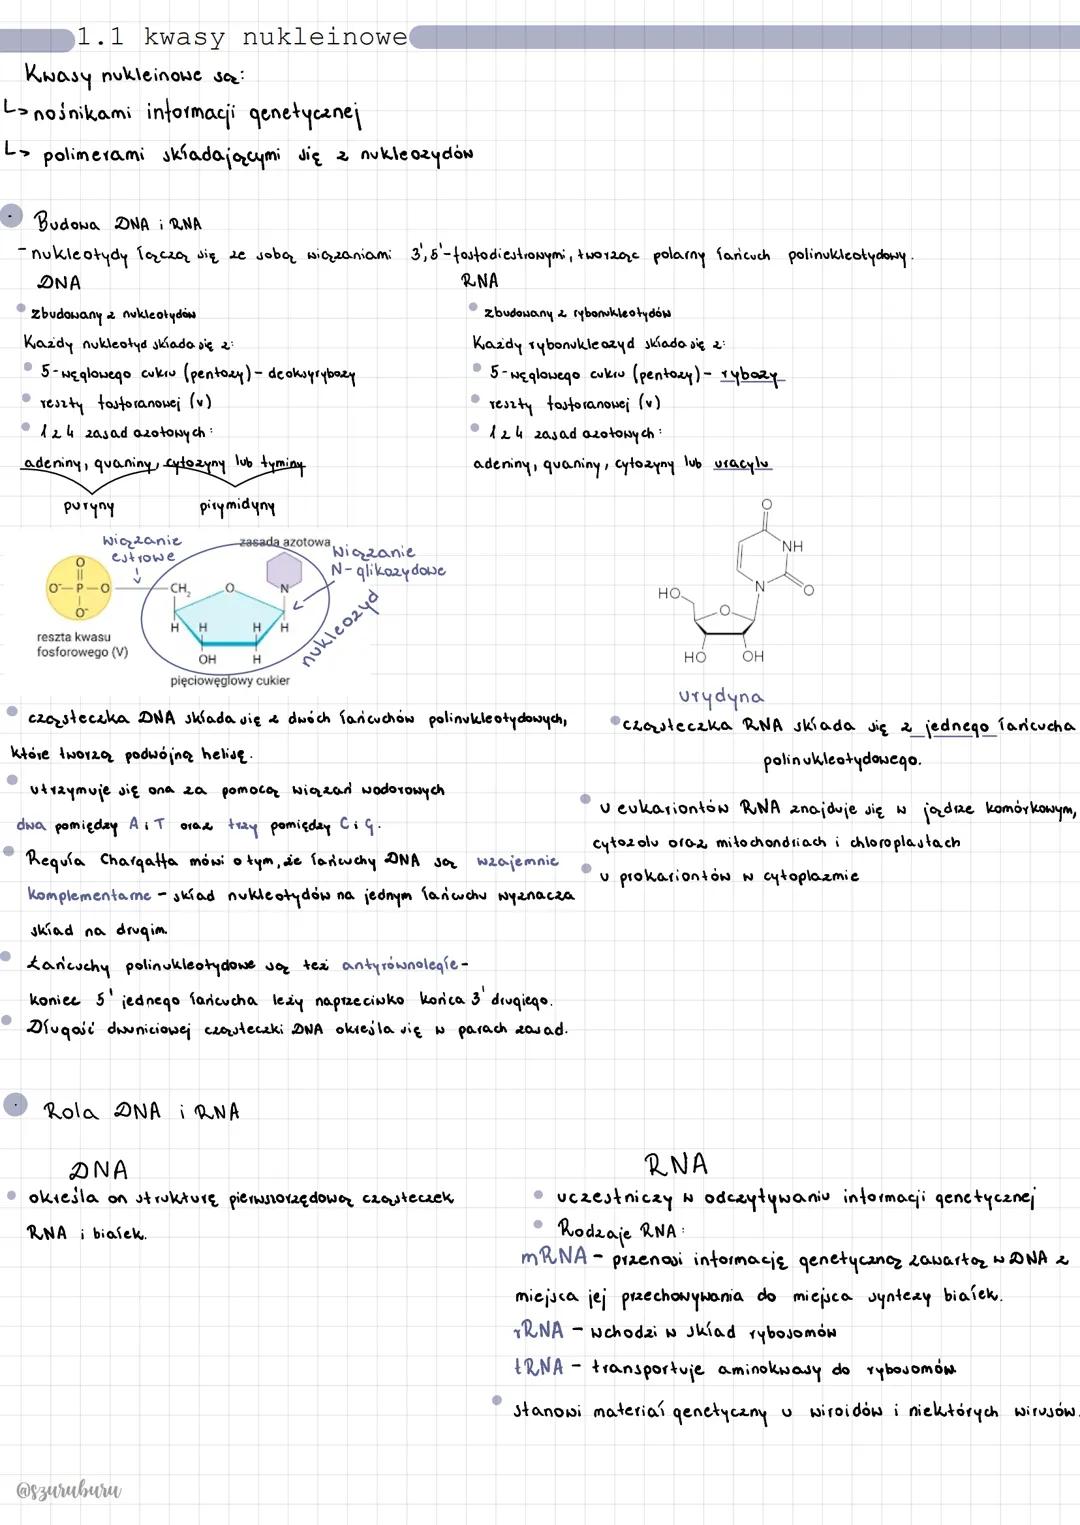 1.1 kwasy nukleinowe
Kwasy nukleinowe są:
↳ nośnikami informacji genetycznej
↳ polimerami składającymi się z nukleozydów
Budowa DNA i RNA
- nukleotydy łączą się ze sobą wiązaniami 3',5'-fosfodiestrowymi, tworząc polarny łańcuch polinukleotydowy.
DNA
• zbudowany z nukleotydów
Każdy nukleotyd składa się z:
• 5-węglowego cukru (pentozy) - deoksyrybozy
• reszty fosforanowej (V)
• 1 z 4 zasad azotowych:
adeniny, guaniny, cytozyny lub tyminy
puryny
pirymidyny
RNA
• zbudowany z rybonukleotydów
Każdy rybonukleozyd składa się z:
• 5-węglowego cukru (pentozy) - rybozy
• reszty fosforanowej (V)
• 1 z 4 zasad azotowych:
adeniny, guaniny, cytozyny lub uracylu
wiązanie
estrowe
zasada azotowa
wiązanie
N-glikozydowe
nukleozyd
O
O⁻-P-O
O⁻
CH₂
O
N
H H H H
OH H
reszta kwasu
fosforowego (V)
pięciowęglowy cukier
O
NH
N
O
HO
O
HO OH
urydyna
• cząsteczka DNA składa się z dwóch łańcuchów polinukleotydowych,
które tworzą podwójną helisę.
• utrzymuje się ona za pomocą wiązań wodorowych
dwa pomiędzy A i T oraz trzy pomiędzy C i G.
• Reguła Chargaffa mówi o tym, że łańcuchy DNA są wzajemnie
komplementarne - skład nukleotydów na jednym łańcuchu wyznacza
skład na drugim.
• Łańcuchy polinukleotydowe są też antyrównoległe -
koniec 5' jednego łańcucha leży naprzeciwko końca 3' drugiego.
• Długość dwuniciowej cząsteczki DNA określa się w parach zasad.
• cząsteczka RNA składa się z jednego łańcucha
polinukleotydowego.
• u eukariontów RNA znajduje się w jądrze komórkowym,
cytozolu oraz mitochondriach i chloroplastach
• u prokariontów w cytoplazmie
Rola DNA i RNA
DNA
• określa on strukturę pierwszorzędową cząsteczek
RNA i białek.
RNA
• uczestniczy w odczytywaniu informacji genetycznej
• Rodzaje RNA:
mRNA - przenosi informację genetyczną zawartą w DNA z
miejsca jej przechowywania do miejsca syntezy białek.
rRNA - wchodzi w skład rybosomów
tRNA - transportuje aminokwasy do rybosomów
• stanowi materiał genetyczny u wiroidów i niektórych wirusów.
@szuruburu